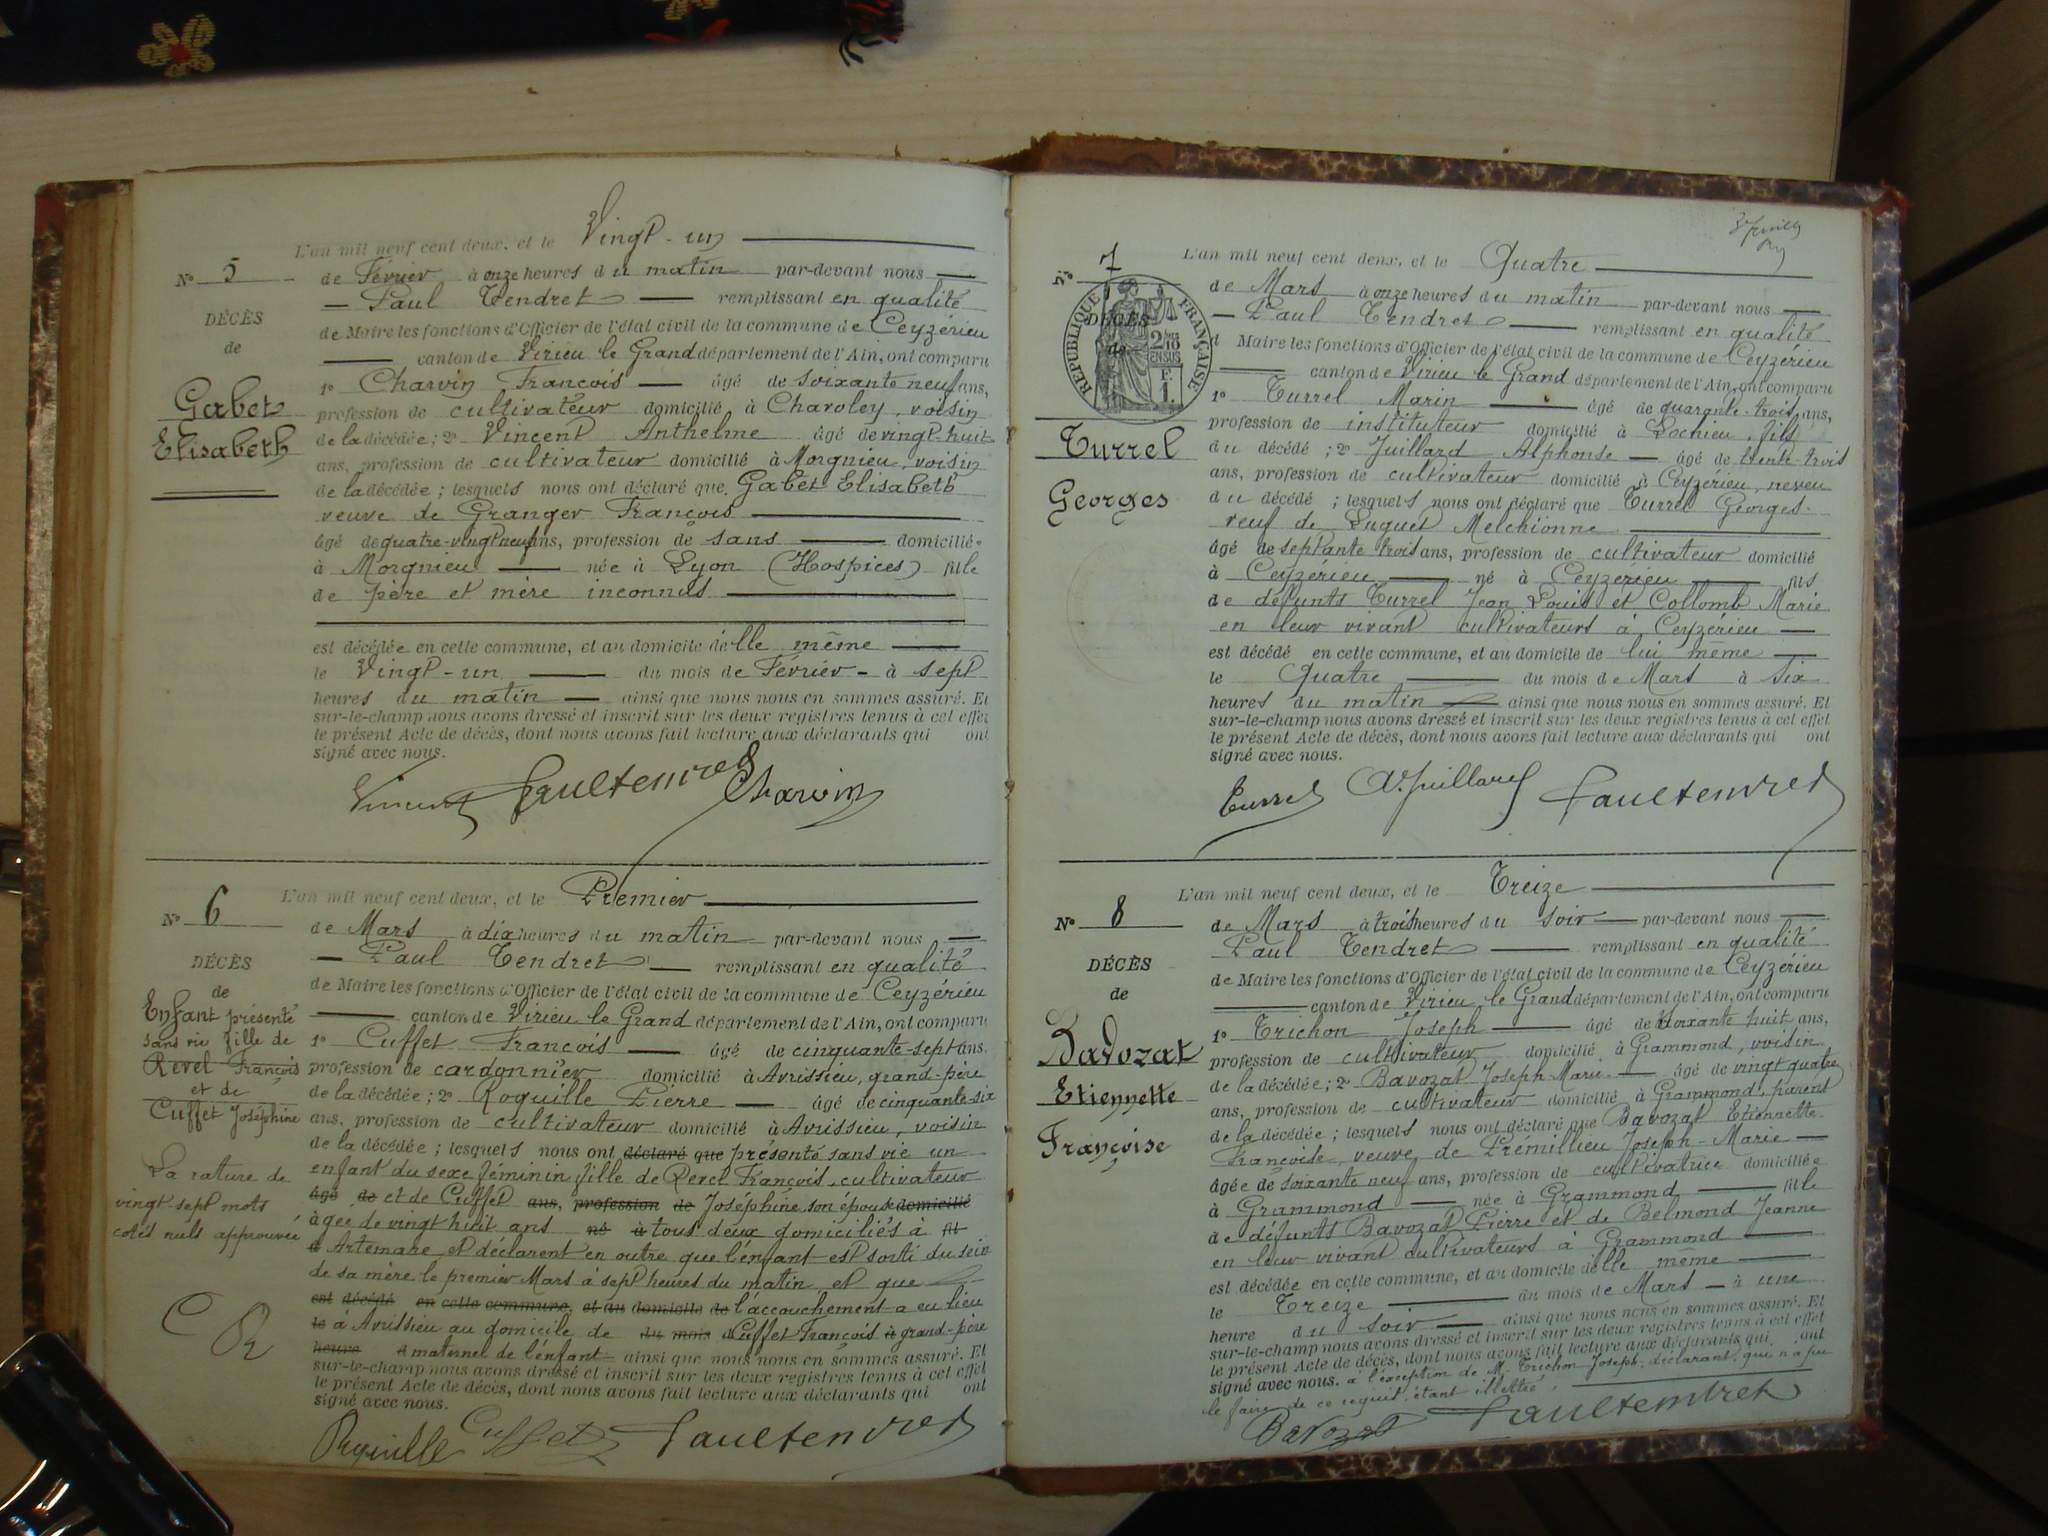 L'an mil neuf cent deux, et le Vingt-un
N° 5
de Février à onze heures du matin par-devant nous
Paul Tendret remplissant en qualité
DÉCÈS
de Maire les fonctions d'Officier de l'état civil de la commune de Ceyzérieu
de
canton de Virieu le Grand département de l'Ain, ont comparu
Gabet
Elisabeth
1° Charvin François âgé de soixante neuf ans,
profession de cultivateur domicilié à Charoley, voisin
de la décédée ; 2° Vincent Anthelme âgé de vingt-huit
ans, profession de cultivateur domicilié à Morgnieu, voisin
de la décédée ; lesquels nous ont déclaré que Gabet Elisabeth
veuve de Granger François
âgé de quatre-vingt neuf ans, profession de sans domiciliée
à Morgnieu née à Lyon (Hospices) fille
de père et mère inconnus
est décédée en cette commune, et au domicile d'elle même
le Vingt-un du mois de Février à sept
heures du matin ainsi que nous nous en sommes assuré. Et
sur-le-champ nous avons dressé et inscrit sur les deux registres tenus à cet effet
le présent Acte de décès, dont nous avons fait lecture aux déclarants qui ont
signé avec nous.
Vincent Paul Tendret Charvin
L'an mil neuf cent deux, et le Premier
N° 6
de Mars à dix heures du matin par-devant nous
Paul Tendret remplissant en qualité
DÉCÈS
de
de Maire les fonctions d'Officier de l'état civil de la commune de Ceyzérieu
canton de Virieu le Grand département de l'Ain, ont comparu
Enfant présenté
sans vie fille de
Revel François
et de
Cuffet Joséphine
1° Cuffet François âgé de cinquante-sept ans,
profession de cordonnier domicilié à Avrissieu, grand-père
de la décédée ; 2° Roquille Pierre âgé de cinquante-six
ans, profession de cultivateur domicilié à Avrissieu, voisin
de la décédée ; lesquels nous ont déclaré que présenté sans vie un
enfant du sexe féminin fille de Revel François, cultivateur
âgé de et de Cuffet ans, profession de Joséphine son épouse domicilié
âgée de vingt huit ans né à tous deux domiciliés à fil
à Artemare et déclarent en outre que l'enfant est sorti du sein
de sa mère le premier Mars à sept heures du matin et que
est décédé en cette commune, et au domicile de l'accouchement a eu lieu
le à Avrissieu au domicile de du mois d Cuffet François à grand-père
heure d maternel de l'enfant ainsi que nous nous en sommes assuré. Et
sur-le-champ nous avons dressé et inscrit sur les deux registres tenus à cet effet
le présent Acte de décès, dont nous avons fait lecture aux déclarants qui ont
signé avec nous.
La rature de
vingt sept mots
cotés nuls approuvée
Roquille Cuffet Paul Tendret
L'an mil neuf cent deux, et le Quatre
N° 7
de Mars à onze heures du matin par-devant nous
Paul Tendret remplissant en qualité
DÉCÈS
de
RÉPUBLIQUE FRANÇAISE
2/10 EN SUS
F. 1.
d Maire les fonctions d'Officier de l'état civil de la commune de Ceyzérieu
canton de Virieu le Grand département de l'Ain, ont comparu
Turrel
Georges
1° Turrel Marin âgé de quarante-trois ans,
profession de instituteur domicilié à Lochieu, fils
du décédé ; 2° Juillard Alphonse âgé de trente-trois
ans, profession de cultivateur domicilié à Ceyzérieu, neveu
du décédé ; lesquels nous ont déclaré que Turrel Georges
veuf de Luquet Melchionne
âgé de septante trois ans, profession de cultivateur domicilié
à Ceyzérieu né à Ceyzérieu fils
de défunts Turrel Jean Louis et Collomb Marie
en leur vivant cultivateurs à Ceyzérieu
est décédé en cette commune, et au domicile de lui même
le Quatre du mois de Mars à six
heures du matin ainsi que nous nous en sommes assuré. Et
sur-le-champ nous avons dressé et inscrit sur les deux registres tenus à cet effet
le présent Acte de décès, dont nous avons fait lecture aux déclarants qui ont
signé avec nous.
Turrel A. Juillard Paul Tendret
L'an mil neuf cent deux, et le Treize
N° 8
de Mars à trois heures du soir par-devant nous
Paul Tendret remplissant en qualité
DÉCÈS
de
de Maire les fonctions d'Officier de l'état civil de la commune de Ceyzérieu
canton de Virieu le Grand département de l'Ain, ont comparu
Bavozat
Etiennette
Françoise
1° Trichon Joseph âgé de soixante huit ans,
profession de cultivateur domicilié à Grammond, voisin
de la décédée ; 2° Bavozat Joseph Marie âgé de vingt quatre
ans, profession de cultivateur domicilié à Grammond, parent
de la décédée ; lesquels nous ont déclaré que Bavozat Etiennette
Françoise, veuve de Prémillieu Joseph-Marie
âgée de soixante neuf ans, profession de cultivatrice domiciliée
à Grammond née à Grammond fille
de défunts Bavozat Pierre et de Belmond Jeanne
en leur vivant cultivateurs à Grammond
est décédée en cette commune, et au domicile d'elle même
le Treize du mois de Mars à une
heure du soir ainsi que nous nous en sommes assuré. Et
sur-le-champ nous avons dressé et inscrit sur les deux registres tenus à cet effet
le présent Acte de décès, dont nous avons fait lecture aux déclarants qui ont
signé avec nous. à l'exception de M. Trichon Joseph, déclarant, qui n'a pu
le faire de ce requis étant illettré.
Bavozat Paul Tendret